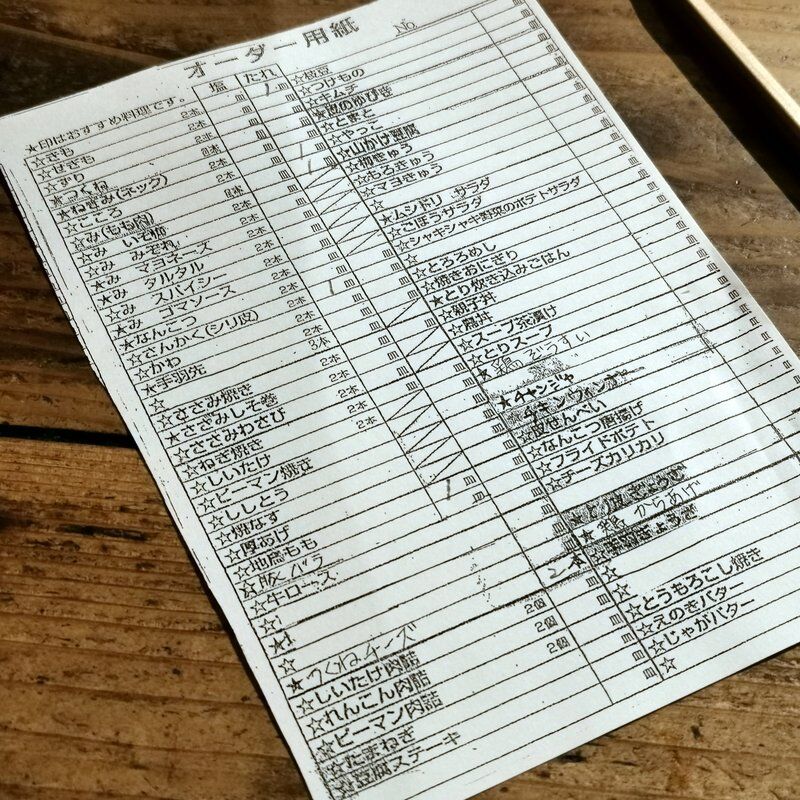 オーダー用紙
No.
★印はおすすめ料理です。
塩 たれ
☆きも 2本 皿 1皿
☆せぎも 2本 皿 皿
☆ずり 2本 皿 皿
★つくね 皿
★ねずみ(ネック) 2本 皿 1皿
☆こころ 2本 皿 1皿
☆み(もも肉) 皿
☆み いそ焼 2本 皿
☆み みぞれ 2本 皿
☆み マヨネーズ 2本 皿
★み タルタル 2本 皿
☆み スパイシー 2本 皿
★み ゴマソース 2本 皿
★なんこつ 2本 1皿
☆さんかく(シリ皮) 2本 皿
☆かわ 2本 皿
★手羽先 3本 皿
☆
☆ささみ焼き 2本 皿
★ささみしそ巻 2本 皿
☆ささみわさび 2本 皿
☆ねぎ焼き 2本 皿
☆しいたけ 2本 皿
☆ピーマン焼き 皿
☆ししとう 皿
☆焼なす 1皿
☆厚あげ 皿
☆地鳥もも 皿
☆豚バラ
☆牛ロース
☆
★つくねチーズ
☆しいたけ肉詰 2個 皿
☆れんこん肉詰 2個 皿
☆ピーマン肉詰 2個 皿
☆たまねぎ 皿
☆豆腐ステーキ 皿
☆枝豆 皿
☆つけもの 皿
☆キムチ 皿
★皮のゆびき 皿
★とまと 皿
☆やっこ 皿
★山かけ豆腐 皿
☆梅きゅう 皿
☆もろきゅう 皿
☆マヨきゅう 皿
☆
★ムシドリ サラダ 皿
☆ごぼうサラダ 皿
☆シャキシャキ野菜のポテトサラダ 皿
☆
☆とろろめし 皿
☆焼きおにぎり 皿
★とり炊き込みごはん 皿
☆親子丼 皿
☆鳥丼 皿
☆スープ茶漬け 皿
☆とりスープ 皿
★鶏ぞうすい
★チャンジャ
☆皮せんべい 皿
☆なんこつ唐揚げ 皿
☆フライドポテト 皿
☆チーズカリカリ 皿
★鶏からあげ
2本
☆
☆とうもろこし焼き 皿
☆えのきバター 皿
☆じゃがバター 皿
☆